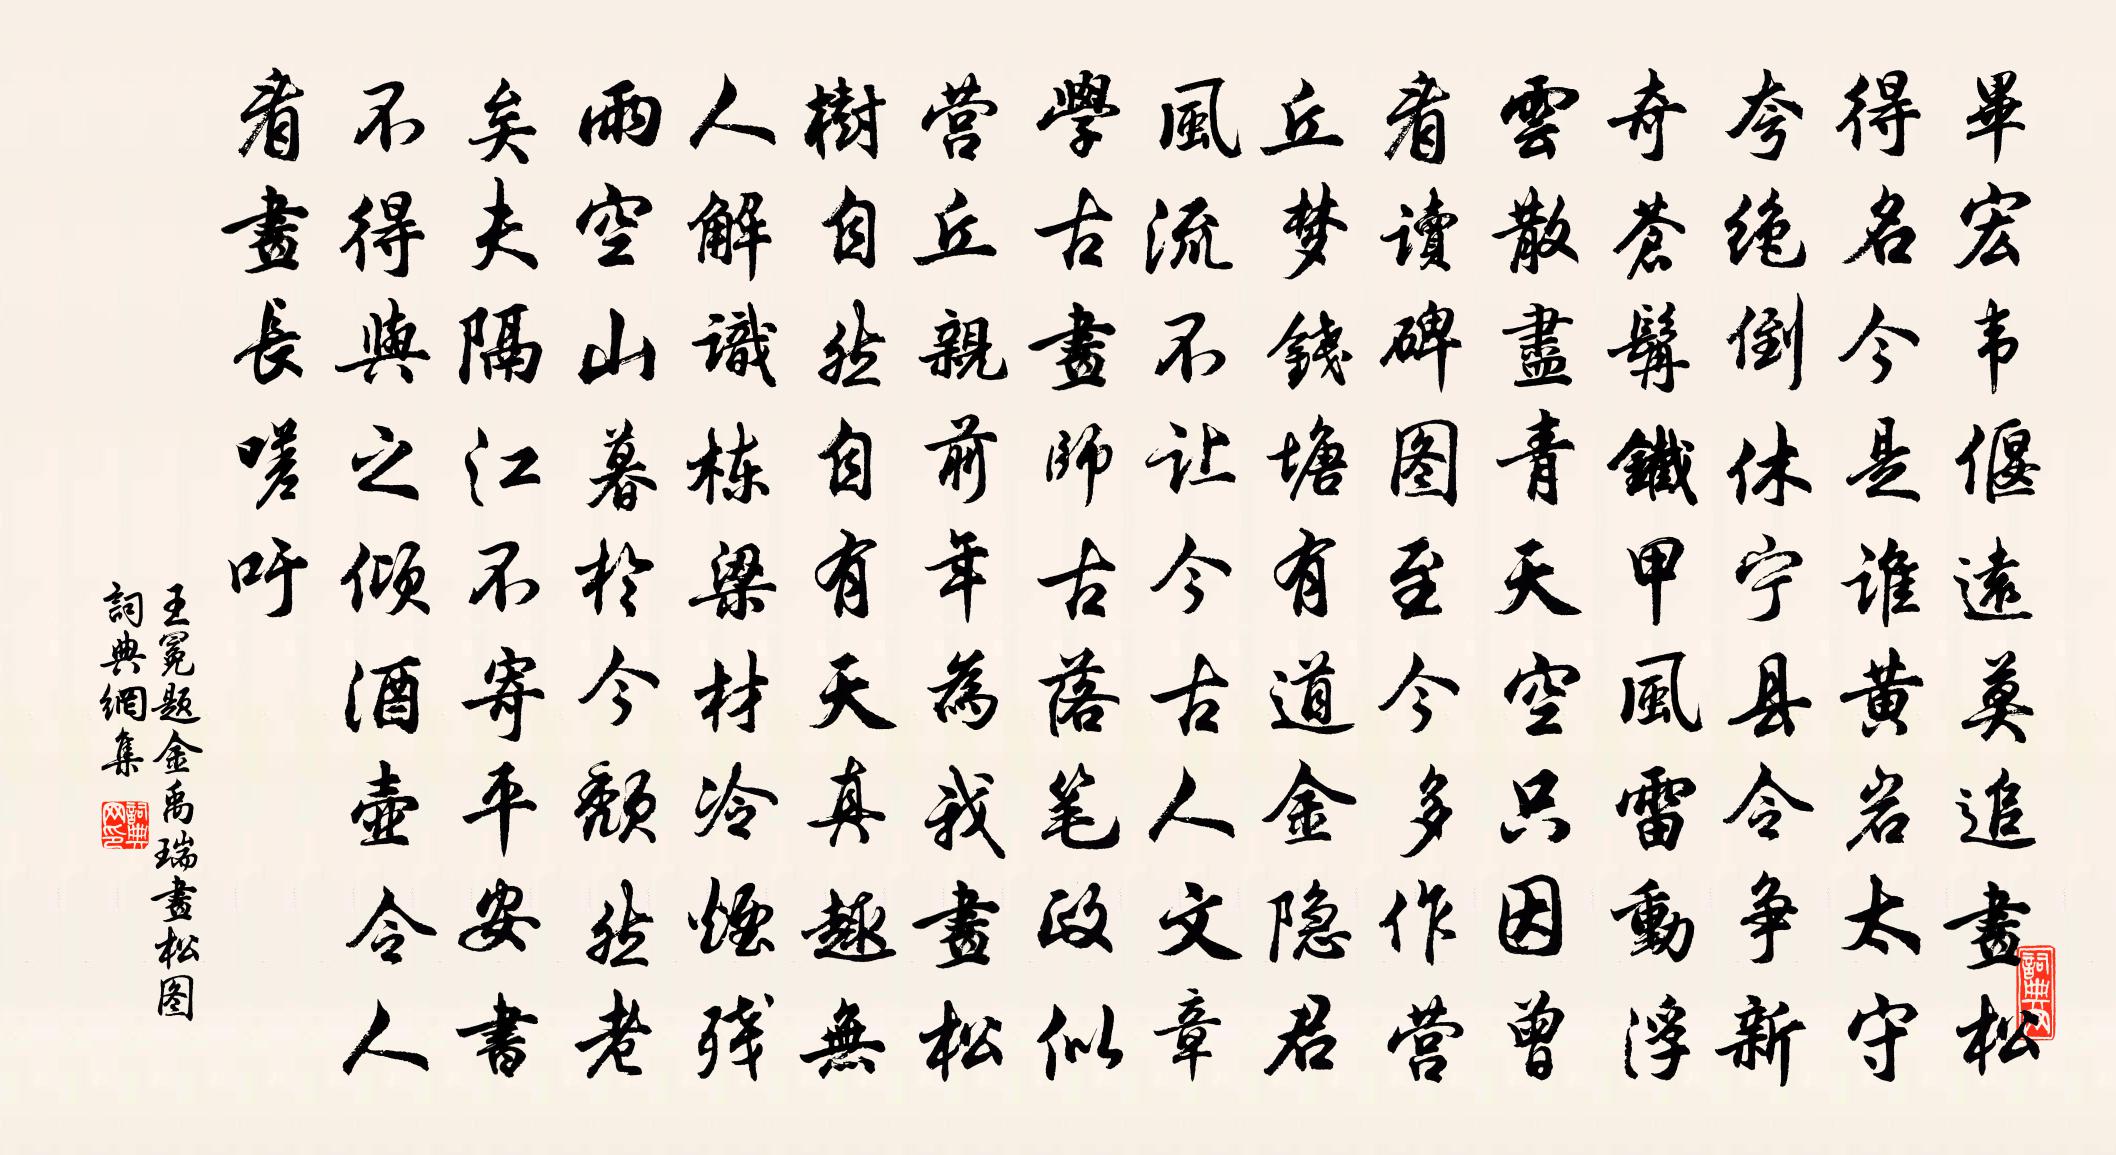 畢宏韦偃遠莫追畫松
得名今是谁黄岩太守
夸绝倒休宁县令争新
奇蒼髯鐵甲風雷動浮
雲散盡青天空只因曾
看讀碑图至今多作营
丘梦錢塘有道金隐君
風流不让今古人文章
學古畫師古落笔政似
营丘親前年為我畫松
樹自然自有天真趣無
人解識栋梁材冷煙残
雨空山暮於今颓然老
矣夫隔江不寄平安書
不得與之倾酒壶令人
看畫長嗟吁
王冕题金禹瑞畫松图
詞典網集
詞典网印
詞典网